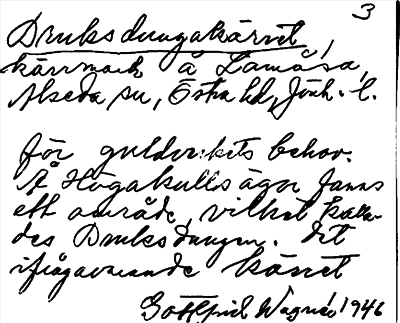 3
Druksdungakärret,
kärrmark å Lamåsa,
Alseda sn, Östra hd, Jönk. l.
för guldverkets behov.
Å Högakulls ägor fanns
ett område, vilket kalla-
des Druksdungen. Det
ifrågavarande känet
Gottfrid Wagnér 1946